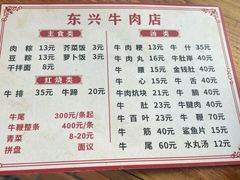 东兴牛肉店
主食类
肉粽 13元 芥菜饭 3元
豆粽 13元 萝卜饭 3元
干拌面 8元
红烧类
牛排 35元 牛蹄 20元
牛尾 300元/条起
牛鞭整条 400元/条
青菜 8-20元
拼盘 面议
汤类
牛肉梗 13元 牛什 35元
牛肉丸 16元 牛肚 35元
牛腰 15元 金钱肚 35元
牛心 15元 牛舌 35元
牛肉炕块 21元 牛肋 35元
牛肚 23元 牛腱肉 35元
牛百叶 23元 牛鞭 70元
牛筋 40元 鲨鱼片 15元
牛尾 60元 水丸汤 12元